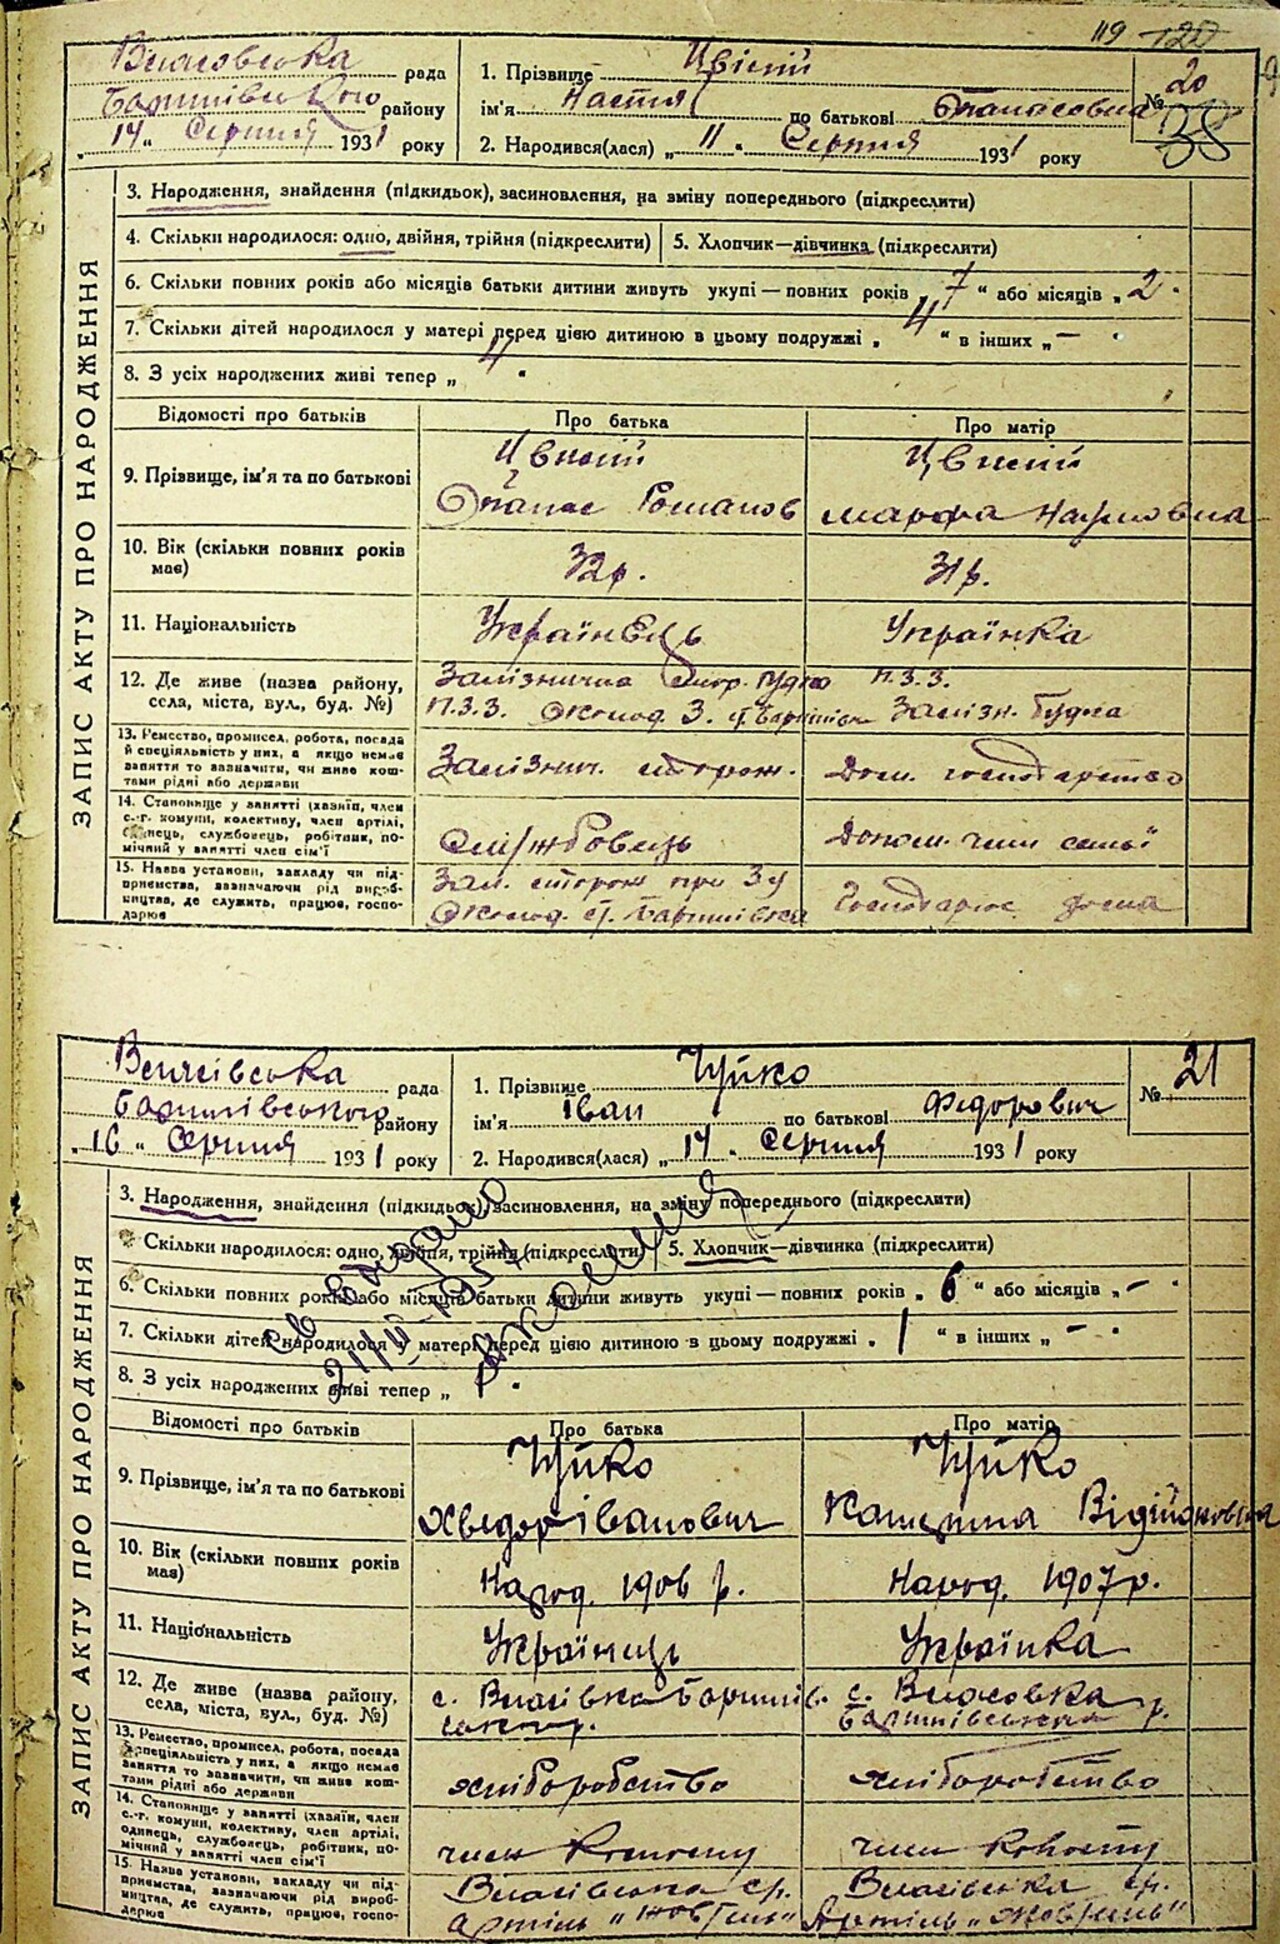 119 120
Власовська рада
Баришівського району
„14" Серпня 1931 року
1. Прізвище Цвіній
ім'я Настя по батькові Опанасовна
2. Народився(лася) „11" Серпня 1931 року
№ 20
38
ЗАПИС АКТУ ПРО НАРОДЖЕННЯ
3. Народження, знайдення (підкидьок), засиновлення, на зміну попереднього (підкреслити)
4. Скільки народилося: одно, двійня, трійня (підкреслити) 5. Хлопчик—дівчинка (підкреслити)
6. Скільки повних років або місяців батьки дитини живуть укупі — повних років „7" або місяців „2"
7. Скільки дітей народилося у матері перед цією дитиною в цьому подружжі „4" в інших „—"
8. З усіх народжених живі тепер „4"
Відомості про батьків Про батька Про матір
9. Прізвище, ім'я та по батькові
Опанас Романов Марфа Наумовна
10. Вік (скільки повних років має) 32 р. 31 р.
11. Національність Українець Українка
12. Де живе (назва району, села, міста, вул., буд. №)
Залізнична будка П.З.З.
П.З.З. Околод. 3. ст. Баришівк Залізн. будка
13. Ремество, промисел, робота, посада й спеціяльність у них, а якщо немає заняття то зазначити, чи живе коштами рідні або держави
Залізнич. сторож. Дом. господарство
14. Становище у занятті (хазяїн, член с.-г. комуни, колективу, член артілі, одинець, службовець, робітник, помічний у занятті член сім'ї
Службовець Допом. член семьї
15. Назва установи, закладу чи підприємства, зазначаючи рід виробництва, де служить, працює, господарює
Зал. сторож при 3
Околод. ст. Баришівка Господарює дома
Власівська рада
Баришівського району
„16" Серпня 1931 року
1. Прізвище Чуйко
ім'я Іван по батькові Федорович
2. Народився(лася) „14" Серпня 1931 року
№ 21
ЗАПИС АКТУ ПРО НАРОДЖЕННЯ
3. Народження, знайдення (підкидьок), засиновлення, на зміну попереднього (підкреслити)
Скільки народилося: одно, двійня, трійня (підкреслити) 5. Хлопчик—дівчинка (підкреслити)
6. Скільки повних років або місяців батьки дитини живуть укупі — повних років „6" або місяців „—"
7. Скільки дітей народилося у матері перед цією дитиною в цьому подружжі „1" в інших „—"
8. З усіх народжених живі тепер „1"
Відомості про батьків Про батька Про матір
9. Прізвище, ім'я та по батькові
Чуйко Чуйко
Хведор Іванович Катерина
10. Вік (скільки повних років має) Народ. 1906 р. Народ. 1907 р.
11. Національність Українець Українка
12. Де живе (назва району, села, міста, вул., буд. №)
с. Власівка Баришів. с. Власовка
Баришівського р.
13. Ремество, промисел, робота, посада спеціяльність у них, а якщо немає заняття то зазначити, чи живе коштами рідні або держави
хліборобство хліборобство
14. Становище у занятті (хазяїн, член с.-г. комуни, колективу, член артілі, одинець, службовець, робітник, помічний у занятті член сім'ї
член Колгоспу член Колгоспу
15. Назва установи, закладу чи підприємства, зазначаючи рід виробництва, де служить, працює, господарює
Власівська с.р. Власівська с.р.
Артіль „Жовтень" Артіль „Жовтень"